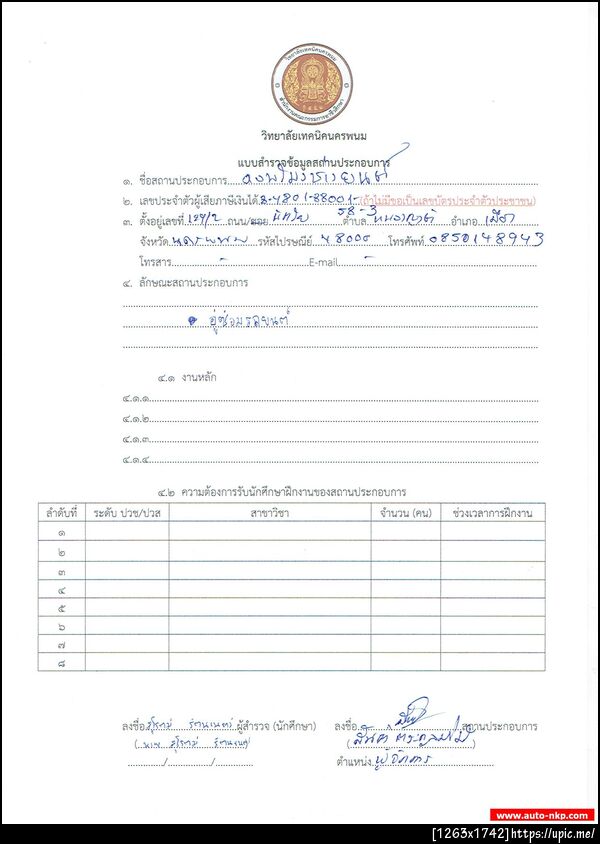 วิทยาลัยเทคนิคนครพนม
สำนักงานคณะกรรมการอาชีวศึกษา
วิทยาลัยเทคนิคนครพนม
แบบสำรวจข้อมูลสถานประกอบการ
๑. ชื่อสถานประกอบการ
๒. เลขประจำตัวผู้เสียภาษีเงินได้ 3-4801-88001-58-3 (ถ้าไม่มีขอเป็นเลขบัตรประจำตัวประชาชน)
๓. ตั้งอยู่เลขที่ 129/2 ถนน/ซอย นิตโย ตำบล หนองญาติ อำเภอ เมือง
จังหวัด นครพนม รหัสไปรษณีย์ 48000 โทรศัพท์ 0850148943
โทรสาร - E-mail -
๔. ลักษณะสถานประกอบการ
อู่ซ่อมรถยนต์
๔.๑ งานหลัก
๔.๑.๑
๔.๑.๒
๔.๑.๓
๔.๑.๔
๔.๒ ความต้องการรับนักศึกษาฝึกงานของสถานประกอบการ
ลำดับที่ ระดับ ปวช/ปวส สาขาวิชา จำนวน (คน) ช่วงเวลาการฝึกงาน
๑
๒
๓
๔
๕
๖
๗
๘
ลงชื่อ ผู้สำรวจ (นักศึกษา) ลงชื่อ สถานประกอบการ
(นาย
//
ตำแหน่ง ผู้จัดการ
www.auto-nkp.com
[1263x1742]https://upic.me/